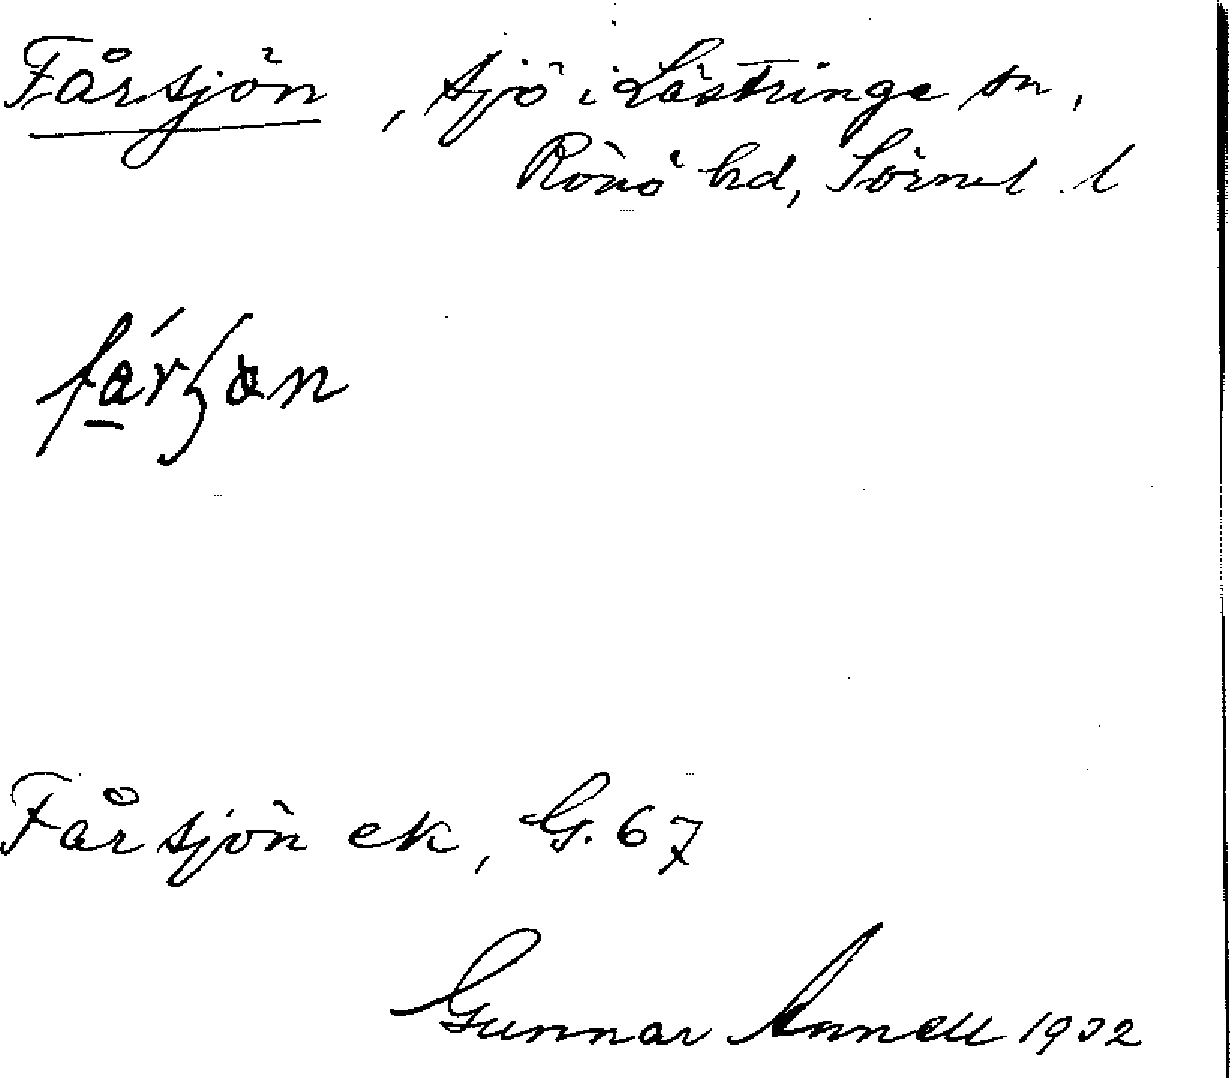 Fårsjön, sjö i Lästringe sn,
Rönö hd, Sörml. l
Fårsjön ek, G. 67
Gunnar Annell 1932